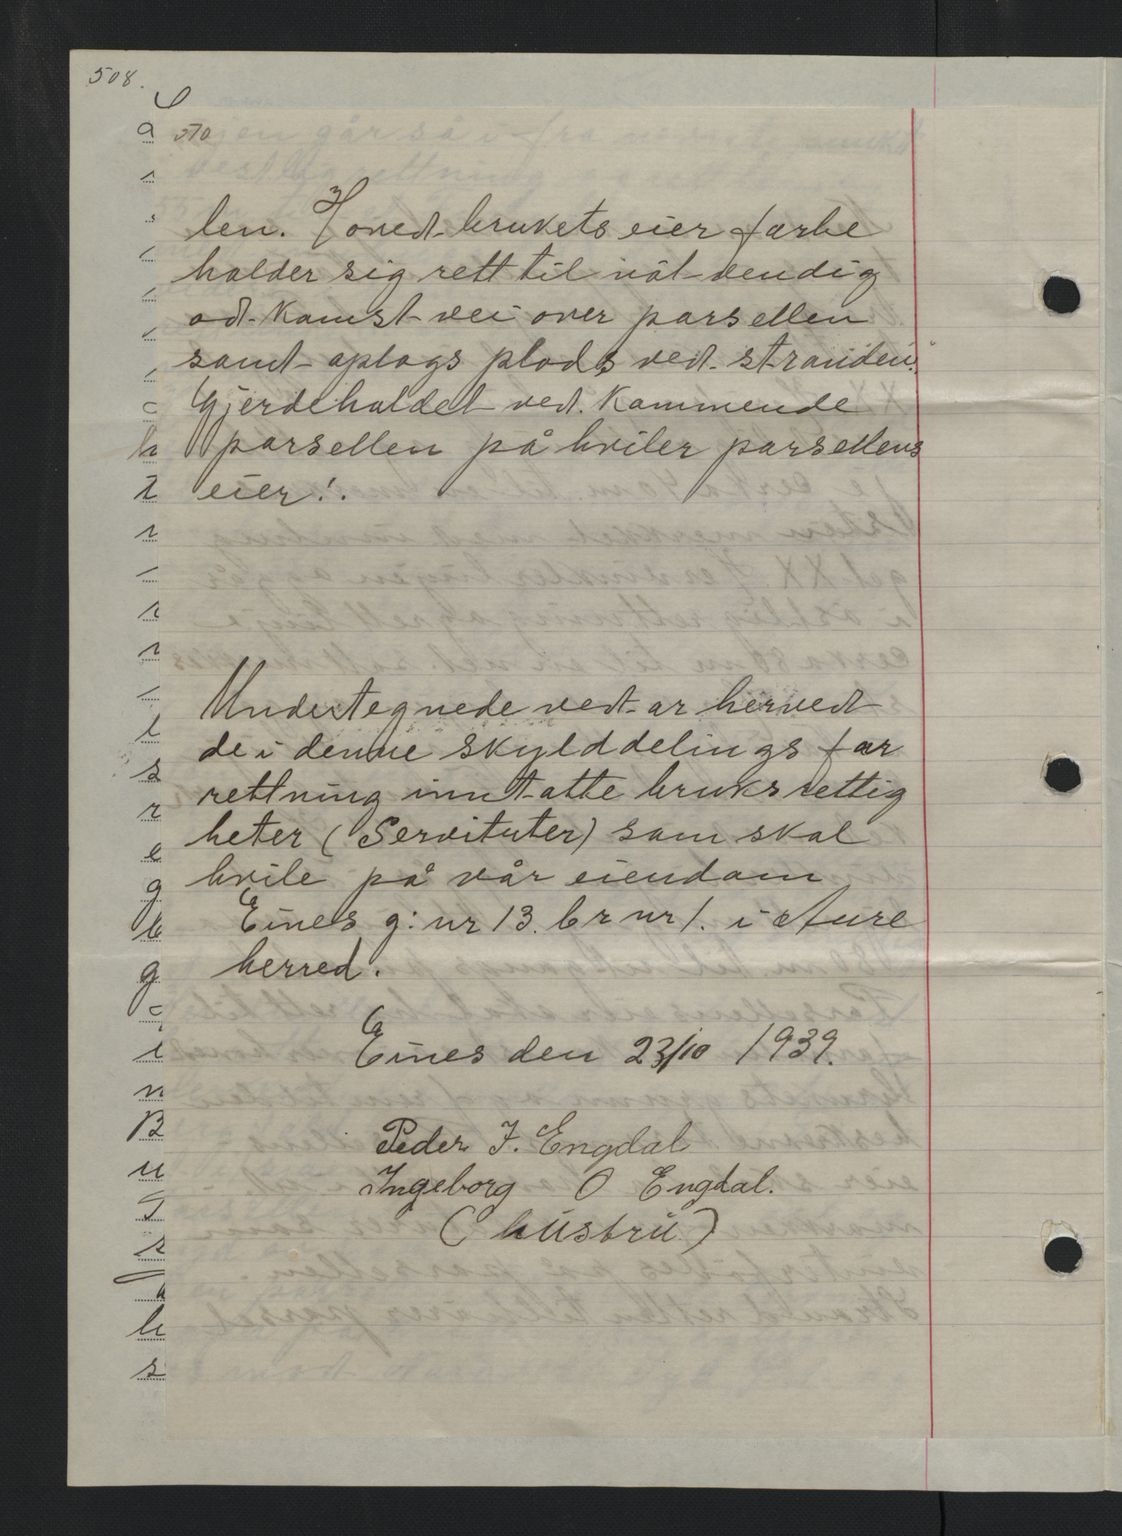 508.
570
len. Hoved-brukets eier forbe
holder sig rett til nöt-vendig
ad-komst-vei over parsellen
samt-oplags plads ved-stranden.
Gjerdeholdet ved. Kommende
parsellen på hviler parsellens
eier!.
Undertegnede ved-ar herved
de i denne skylddelings for
rettning inntatte bruksrettig
heter (Servituter) som skal
hvile på vår eiendom
Eines g: nr 13. br nr 1. i Aure
herred.
Eines den 23/10 1939.
Peder J. Engdal
Ingeborg O Engdal.
(hustru)